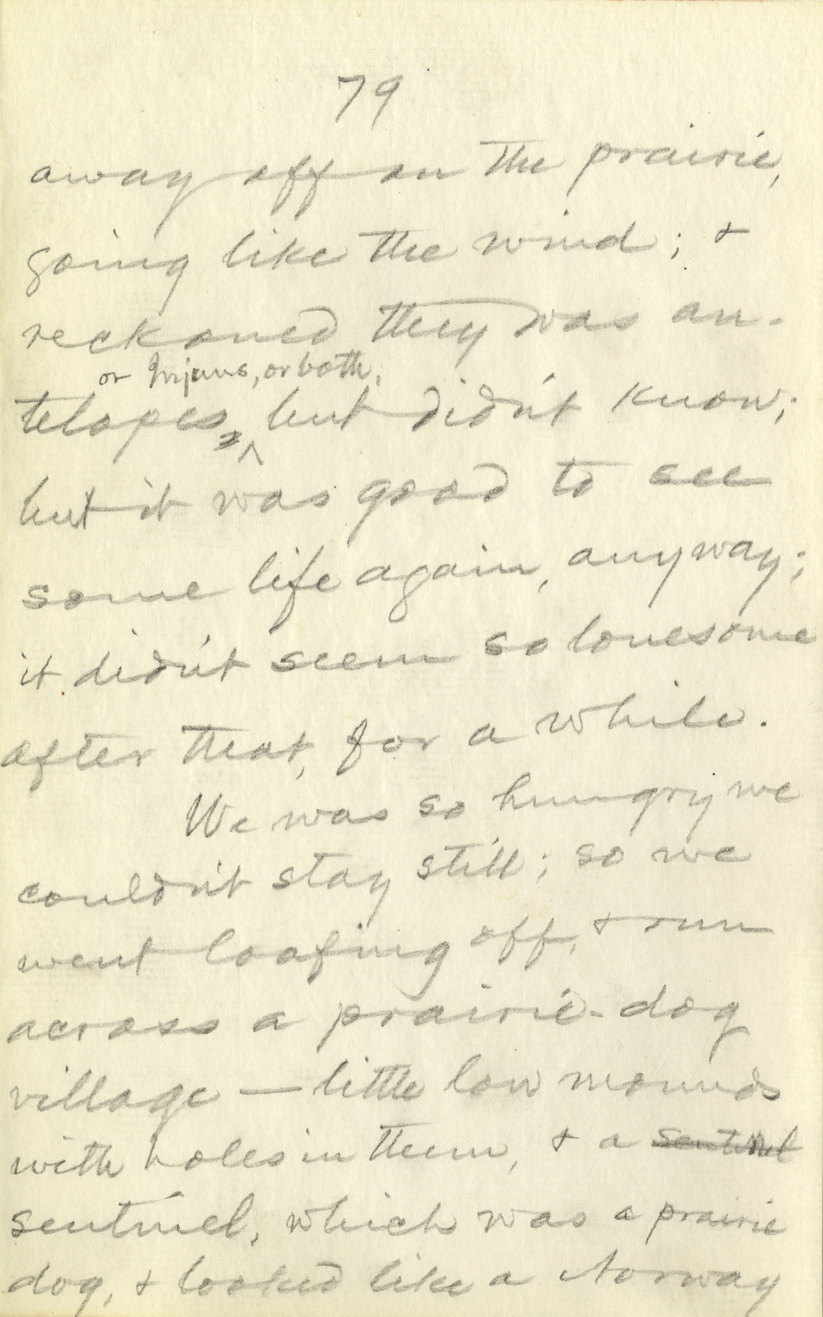 79
away off on the prairie,
going like the wind; &
reckoned they was an-
or Injuns, or both,
telopes, but didn't know;
but it was good to see
some life again, anyway;
it didn't seem so lonesome
after that, for a while.
We was so hungry we
couldn't stay still; so we
went loafing off, & run
across a prairie-dog
village — little low mounds
with holes in them, & a sentinel
sentinel, which was a prairie
dog, & looked like a Norway